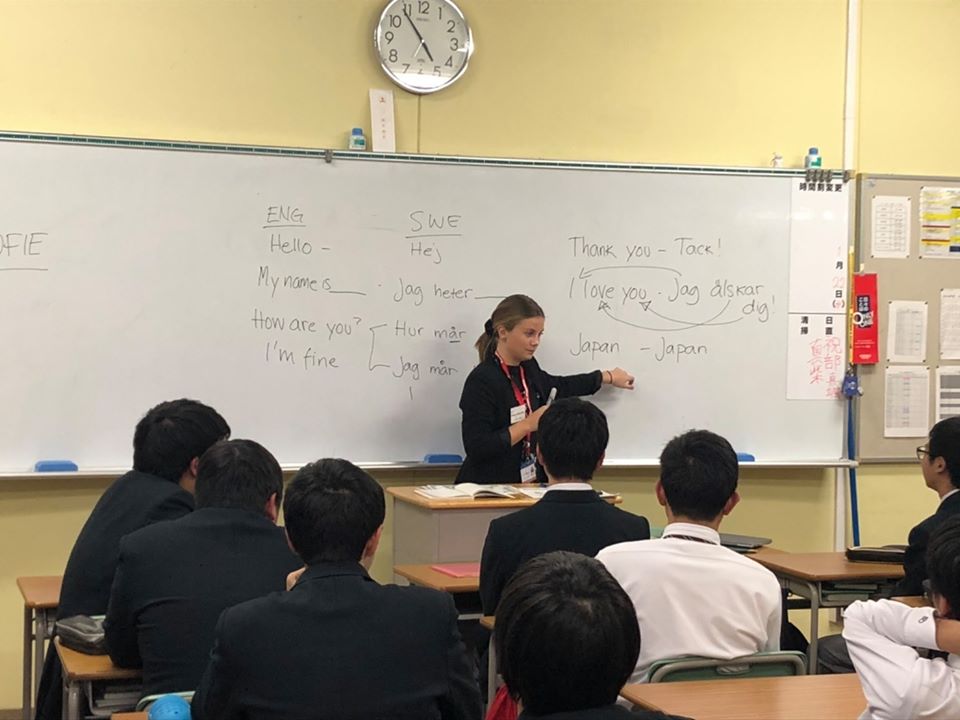 OFIE
ENG
Hello –
My name is ___
How are you?
I'm fine
SWE
Hej
Jag heter ___
Hur mår
Jag mår
Thank you – Tack!
I love you · Jag älskar
dig!
Japan – Japan
時間割変更
月
日
日直
清掃
12
1
2
3
4
5
7
8
9
10
11